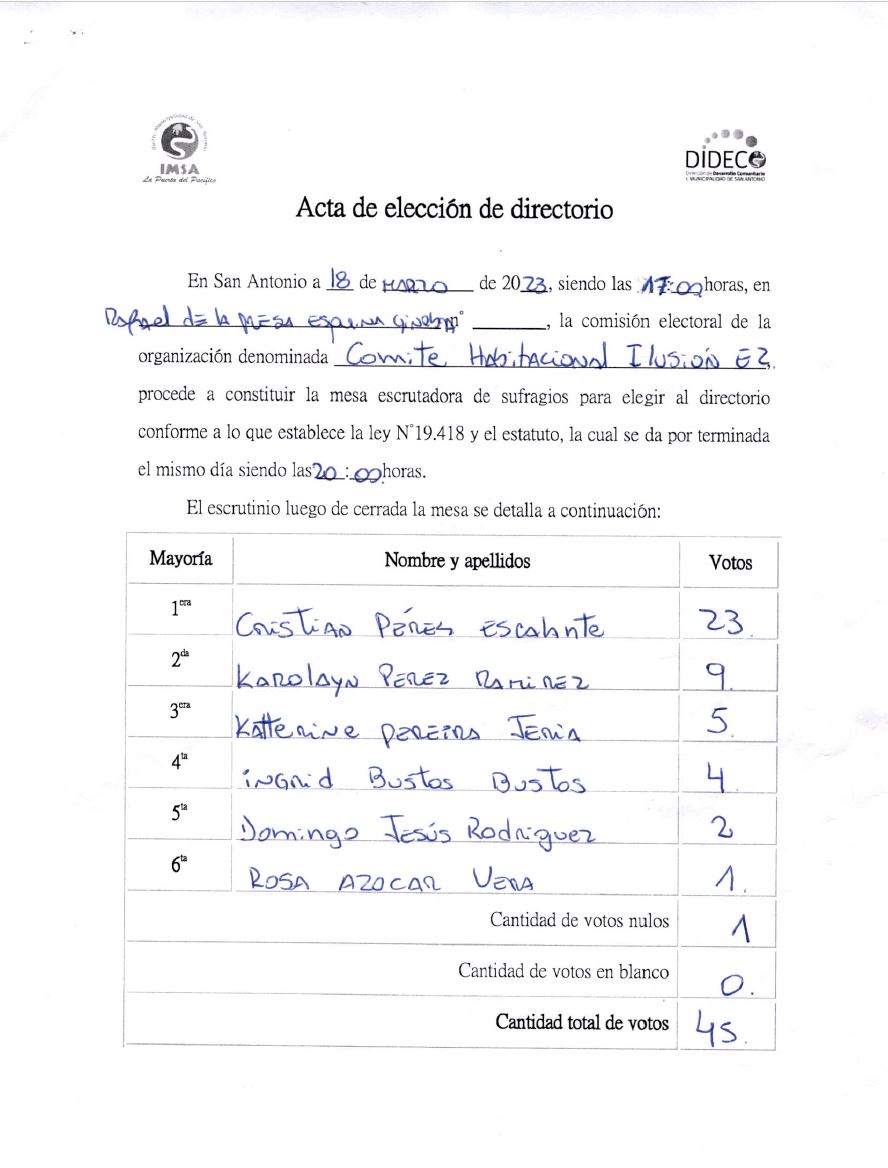 IMSA
La Puerta del Pacífico
DIDECO
Dirección de Desarrollo Comunitario
I. MUNICIPALIDAD DE SAN ANTONIO
Acta de elección de directorio
En San Antonio a 18 de MARZO de 2023, siendo las 17:00 horas, en
Rafael DE la MESA ESQUINA n° ______, la comisión electoral de la
organización denominada Comite Habitacional Ilusión E2,
procede a constituir la mesa escrutadora de sufragios para elegir al directorio
conforme a lo que establece la ley N°19.418 y el estatuto, la cual se da por terminada
el mismo día siendo las 20:00 horas.
El escrutinio luego de cerrada la mesa se detalla a continuación:
Mayoría Nombre y apellidos Votos
1era CRISTIAN PÉRES ESCALANTE 23.
2da KAROLAYN PEREZ RAMIREZ 9.
3era KATTERINE PEREIRA JERIA 5.
4ta INGRID BUSTOS BUSTOS 4.
5ta Domingo Jesús Rodriguez 2
6ta ROSA AZOCAR VERA 1.
Cantidad de votos nulos 1
Cantidad de votos en blanco 0.
Cantidad total de votos 45.